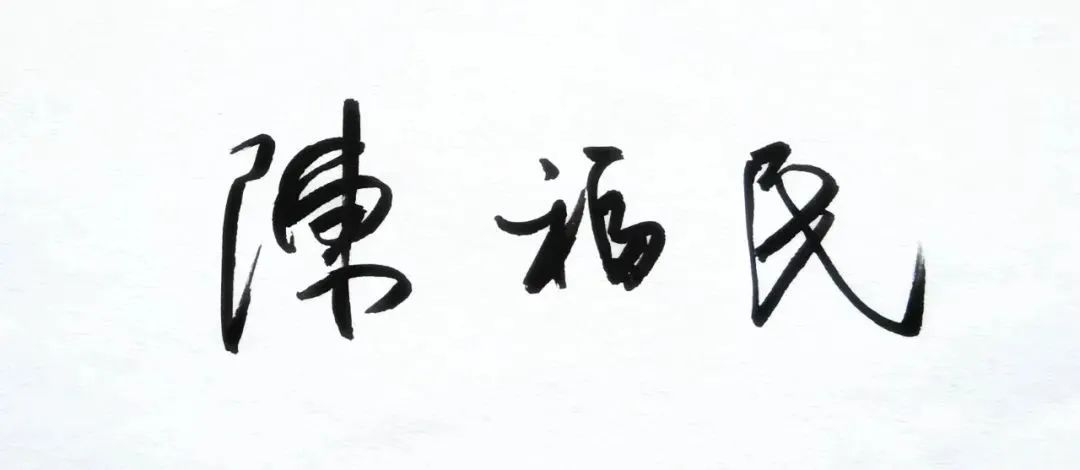 陳福民